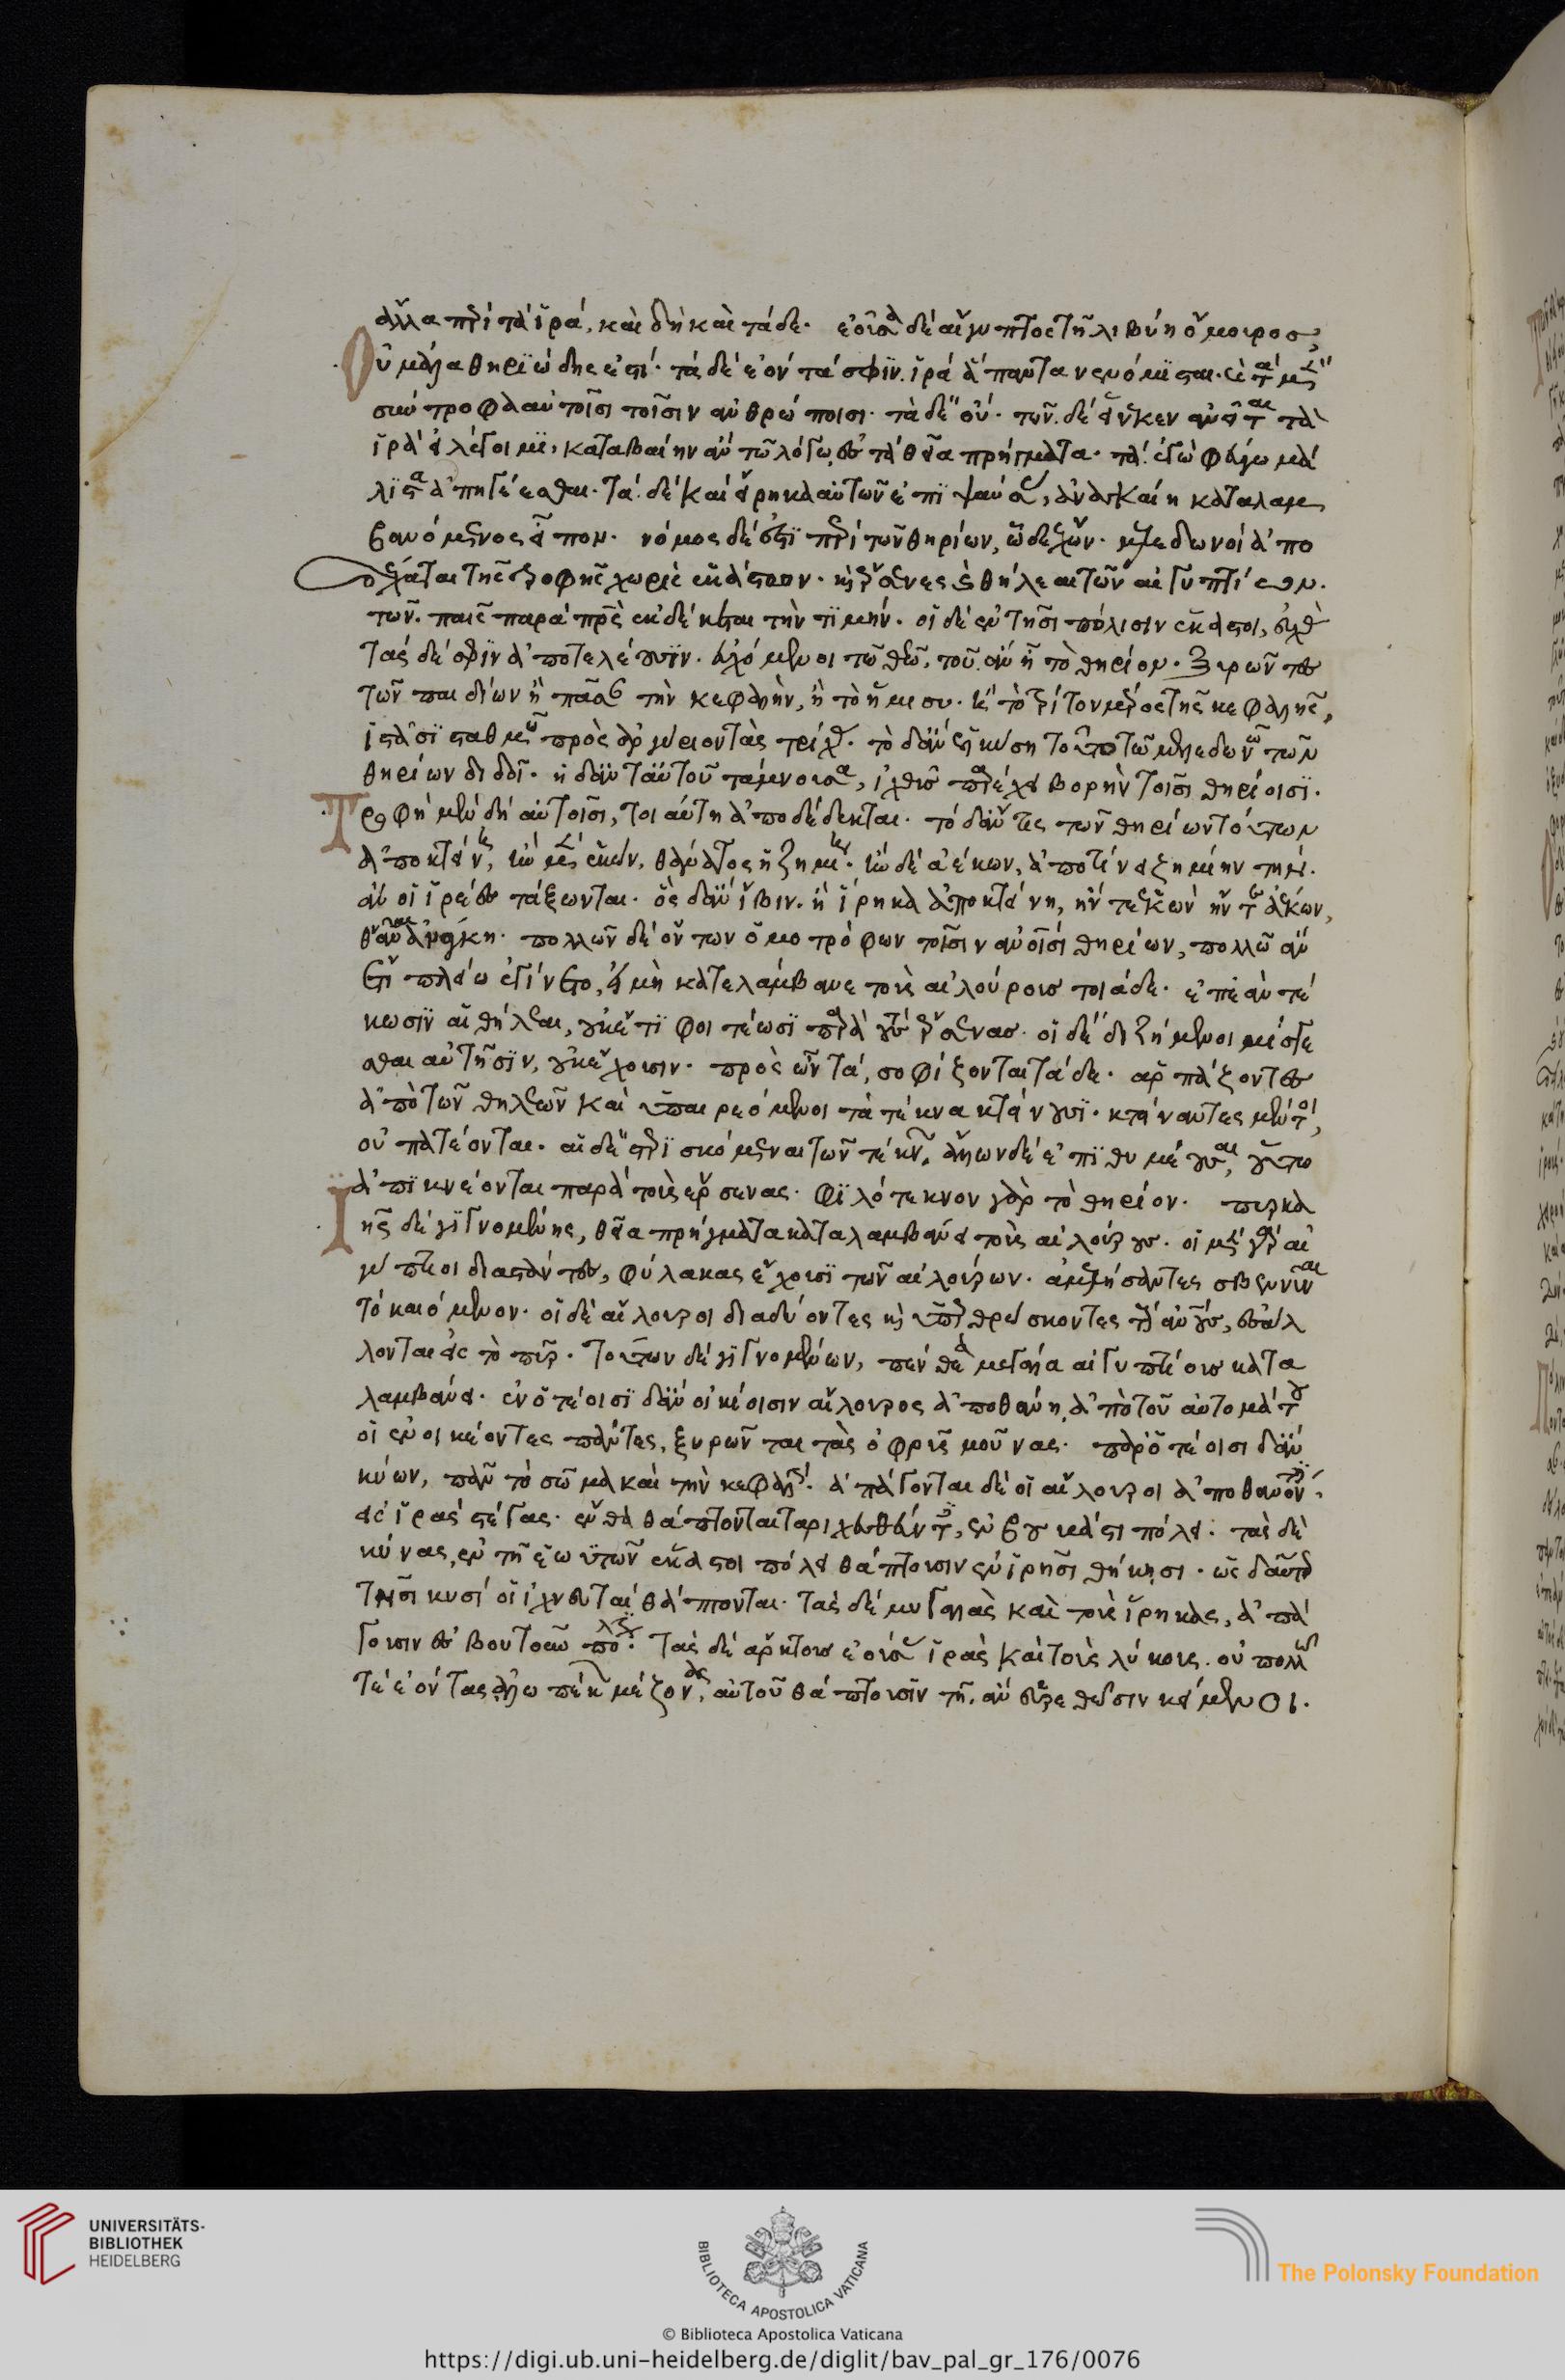 ἄλλα περὶ τὰ ἱρά, καὶ δὴ καὶ τάδε· ἐοῦσα δὲ αἴγυπτος τῆ λιβύη ὅμουρος,
Οὐ μάλα θηριώδης ἐστί· τὰ δὲ ἐόντα σφιν. ἱρὰ ἅπαντα νενόμισται· καὶ τὰ μὲν
σύντροφα αὐτοῖσι τοῖσιν ἀνθρώποισι· τὰ δὲ οὔ· τῶν δὲ εἵνεκεν ἀνεῖται τὰ
ἱρὰ εἰ λέγοιμι, καταβαίην ἂν τῶ λόγω ἐς τὰ θεῖα πρήγματα· τὰ ἐγὼ φεύγω μά
λιστα ἀπηγέεσθαι· τὰ δὲ καὶ εἴρηκα αὐτῶν ἐπιψαύσας, ἀναγκαίη καταλαμ
βανόμενος εἶπον· νόμος δέ ἐστι περὶ τῶν θηρίων, ὧδε ἔχων· μελεδωνοὶ ἀπο
δεδέχαται τῆς τροφῆς χωρὶς ἑκάστων· καὶ ἔρσενες καὶ θήλεαι τῶν αἰγυπτίων·
τῶν παῖς παρὰ πατρὸς ἐκδέκεται τὴν τιμήν· οἱ δὲ ἐν τῆσι πόλισιν ἕκαστοι, εὐχὰς
τάς δέ σφιν ἀποτελέουσιν· εὐχόμενοι τῶ θεῶ, τοῦ ἂν ἦ τὸ θηρίον· ξυρῶντες
τῶν παιδίων ἢ πᾶσαν τὴν κεφαλὴν, ἢ τὸ ἥμισυ· ἢ τὸ τρίτον μέρος τῆς κεφαλῆς,
ἱστᾶσι σταθμῶ πρὸς ἀργύριον τὰς τρίχας· τὸ δ' ἂν ἑλκύση τοῦτο τῶ μελεδωνῶ τῶν
θηρίων διδοῖ· ἡ δ' ἀντ' αὐτοῦ τάμνουσα, ἰχθῦς παρέχει βορὴν τοῖσι θηρίοισι·
Τροφὴ μὲν δὴ αὐτοῖσι, τοιαύτη ἀποδέδεκται· τὸ δ' ἄν τις τῶν θηρίων τούτων
ἀποκτείνη, ἢν μὲν ἑκών, θάνατος ἡ ζημίη· ἢν δὲ ἀέκων, ἀποτίνει ζημίην τὴν
ἂν οἱ ἱρέες τάξωνται· ὃς δ' ἂν ἴβιν ἢ ἴρηκα ἀποκτείνη, ἤν τε ἑκὼν ἤν τε ἀέκων,
θνᾶναι ἀνάγκη· πολλῶν δὲ ὄντων ὁμοτρόφων τοῖσιν ἀνοῖσι θηρίων, πολλῶ ἂν
ἔτι πλείω ἐγίνετο, εἰ μὴ κατελάμβανε τοὺς αἰλούρους τοιάδε· ἐπεὰν τέ
κωσιν αἱ θήλεαι, οὐκέτι φοιτέωσι παρὰ τοὺς ἔρσενας· οἱ δὲ διζήμενοι μίσγε
σθαι αὐτῆσιν, οὐκ ἔχουσιν· πρὸς ὦν ταῦτα, σοφίζονται τάδε· ἁρπάζοντες
ἀπὸ τῶν θηλέων καὶ ὑπαιρεόμενοι τὰ τέκνα κτείνουσι· κτείναντες μέντοι,
οὐ πατέονται· αἱ δὲ στερισκόμεναι τῶν τέκνων, ἄλλων δὲ ἐπιθυμέουσαι, οὕτω
ἀπικνέονται παρὰ τοὺς ἔρσενας· φιλότεκνον γὰρ τὸ θηρίον· πυρκα
Ιῆς δὲ γιγνομένης, θεῖα πρήγματα καταλαμβάνει τοὺς αἰλούρους· οἱ μὲν γὰρ αἰ
γύπτιοι διαστάντες, φύλακας ἔχουσι τῶν αἰλούρων· ἀμελήσαντες σβεννύναι
τὸ καιόμενον· οἱ δὲ αἴλουροι διαδύοντες καὶ ὑπερθρώσκοντες τοὺς ἀνους, ἐσάλ
λονται εἰς τὸ πῦρ· τούτων δὲ γιγνομένων, πένθεα μεγάλα αἰγυπτίους κατα
λαμβάνει· ἐν ὁτέοισι δ' ἂν οἰκίοισιν αἴλουρος ἀποθάνη ἀπὸ τοῦ αὐτομάτου
οἱ ἐνοικέοντες πάντες, ξυρῶνται τὰς ὀφρῦς μούνας· παρ' ὁτέοισι δ' ἂν
κύων, πᾶν τὸ σῶμα καὶ τὴν κεφαλήν· ἀπάγονται δὲ οἱ αἴλουροι ἀποθανόντες
εἰς ἱρὰς στέγας· ἔνθα θάπτονται ταριχευθέντες, ἐν βουβάστι πόλει· τὰς δὲ
κύνας, ἐν τῆ ἑωυτῶν ἕκαστοι πόλει θάπτουσιν ἐν ἱρῆσι θήκησι· ὣς δ' αὔτως
τῆσι κυσὶ οἱ ἰχνευταὶ θάπτονται· τὰς δὲ μυγαλὰς καὶ τοὺς ἴρηκας, ἀπά
γουσιν ἐς βουτοῦν πόλιν· τὰς δὲ ἄρκτους ἐούσας ἱρὰς καὶ τοὺς λύκους οὐ πολλῶ
τέ ἐόντας ἀλωπέκων μέζονας, αὐτοῦ θάπτουσιν τῆ ἂν εὑρεθέωσιν κείμενοι·
UNIVERSITÄTS-
BIBLIOTHEK
HEIDELBERG
BIBLIOTECA APOSTOLICA VATICANA
The Polonsky Foundation
© Biblioteca Apostolica Vaticana
https://digi.ub.uni-heidelberg.de/diglit/bav_pal_gr_176/0076